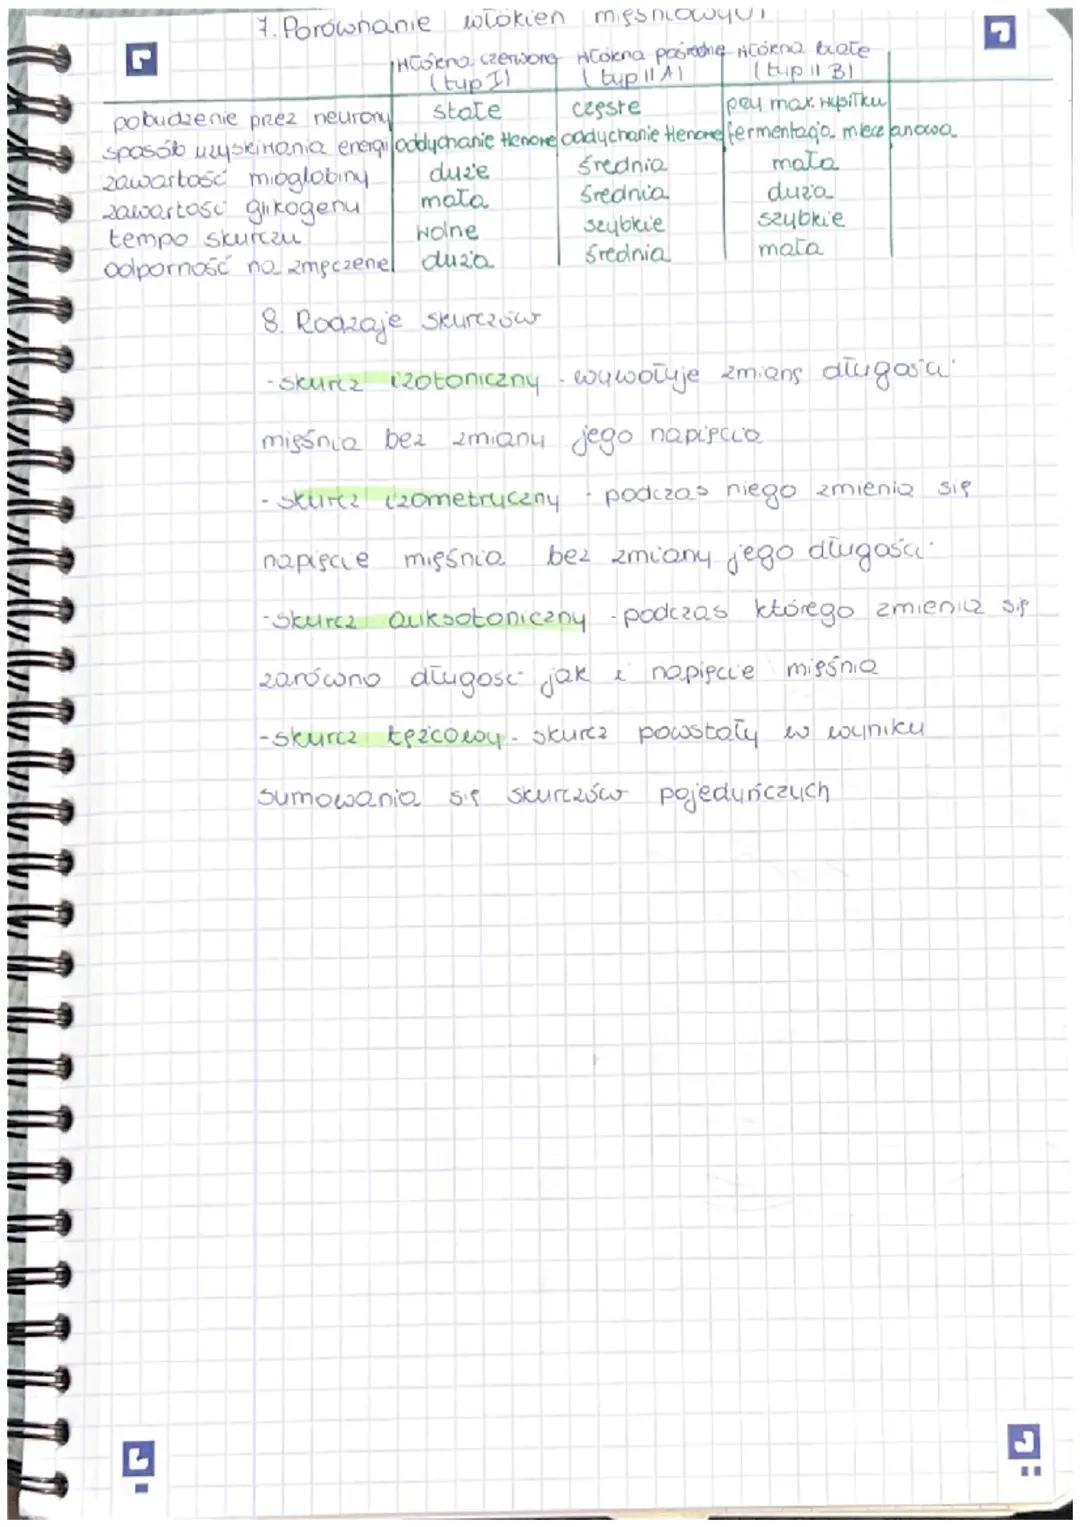 7. Porównanie włókien mięśniowych
włókna czerwone włókna pośrednie włókna białe
(typ I) (typ II A) (typ II B)
pobudzenie przez neurony stałe częste przy max. wysiłku
sposób uzyskiwania energii oddychanie tlenowe oddychanie tlenowe fermentacja mleczanowa
zawartość mioglobiny duże średnia mała
zawartość glikogenu mała średnia duża
tempo skurczu wolne szybkie szybkie
odporność na zmęczenie duża średnia mała
8. Rodzaje skurczów
-skurcz izotoniczny - wywołuje zmianę długości
mięśnia bez zmiany jego napięcia
-skurcz izometryczny - podczas niego zmienia się
napięcie mięśnia bez zmiany jego długości
-skurcz auksotoniczny - podczas którego zmienia się
zarówno długość jak i napięcie mięśnia
-skurcz tężcowy - skurcz powstały w wyniku
sumowania się skurczów pojedyńczych